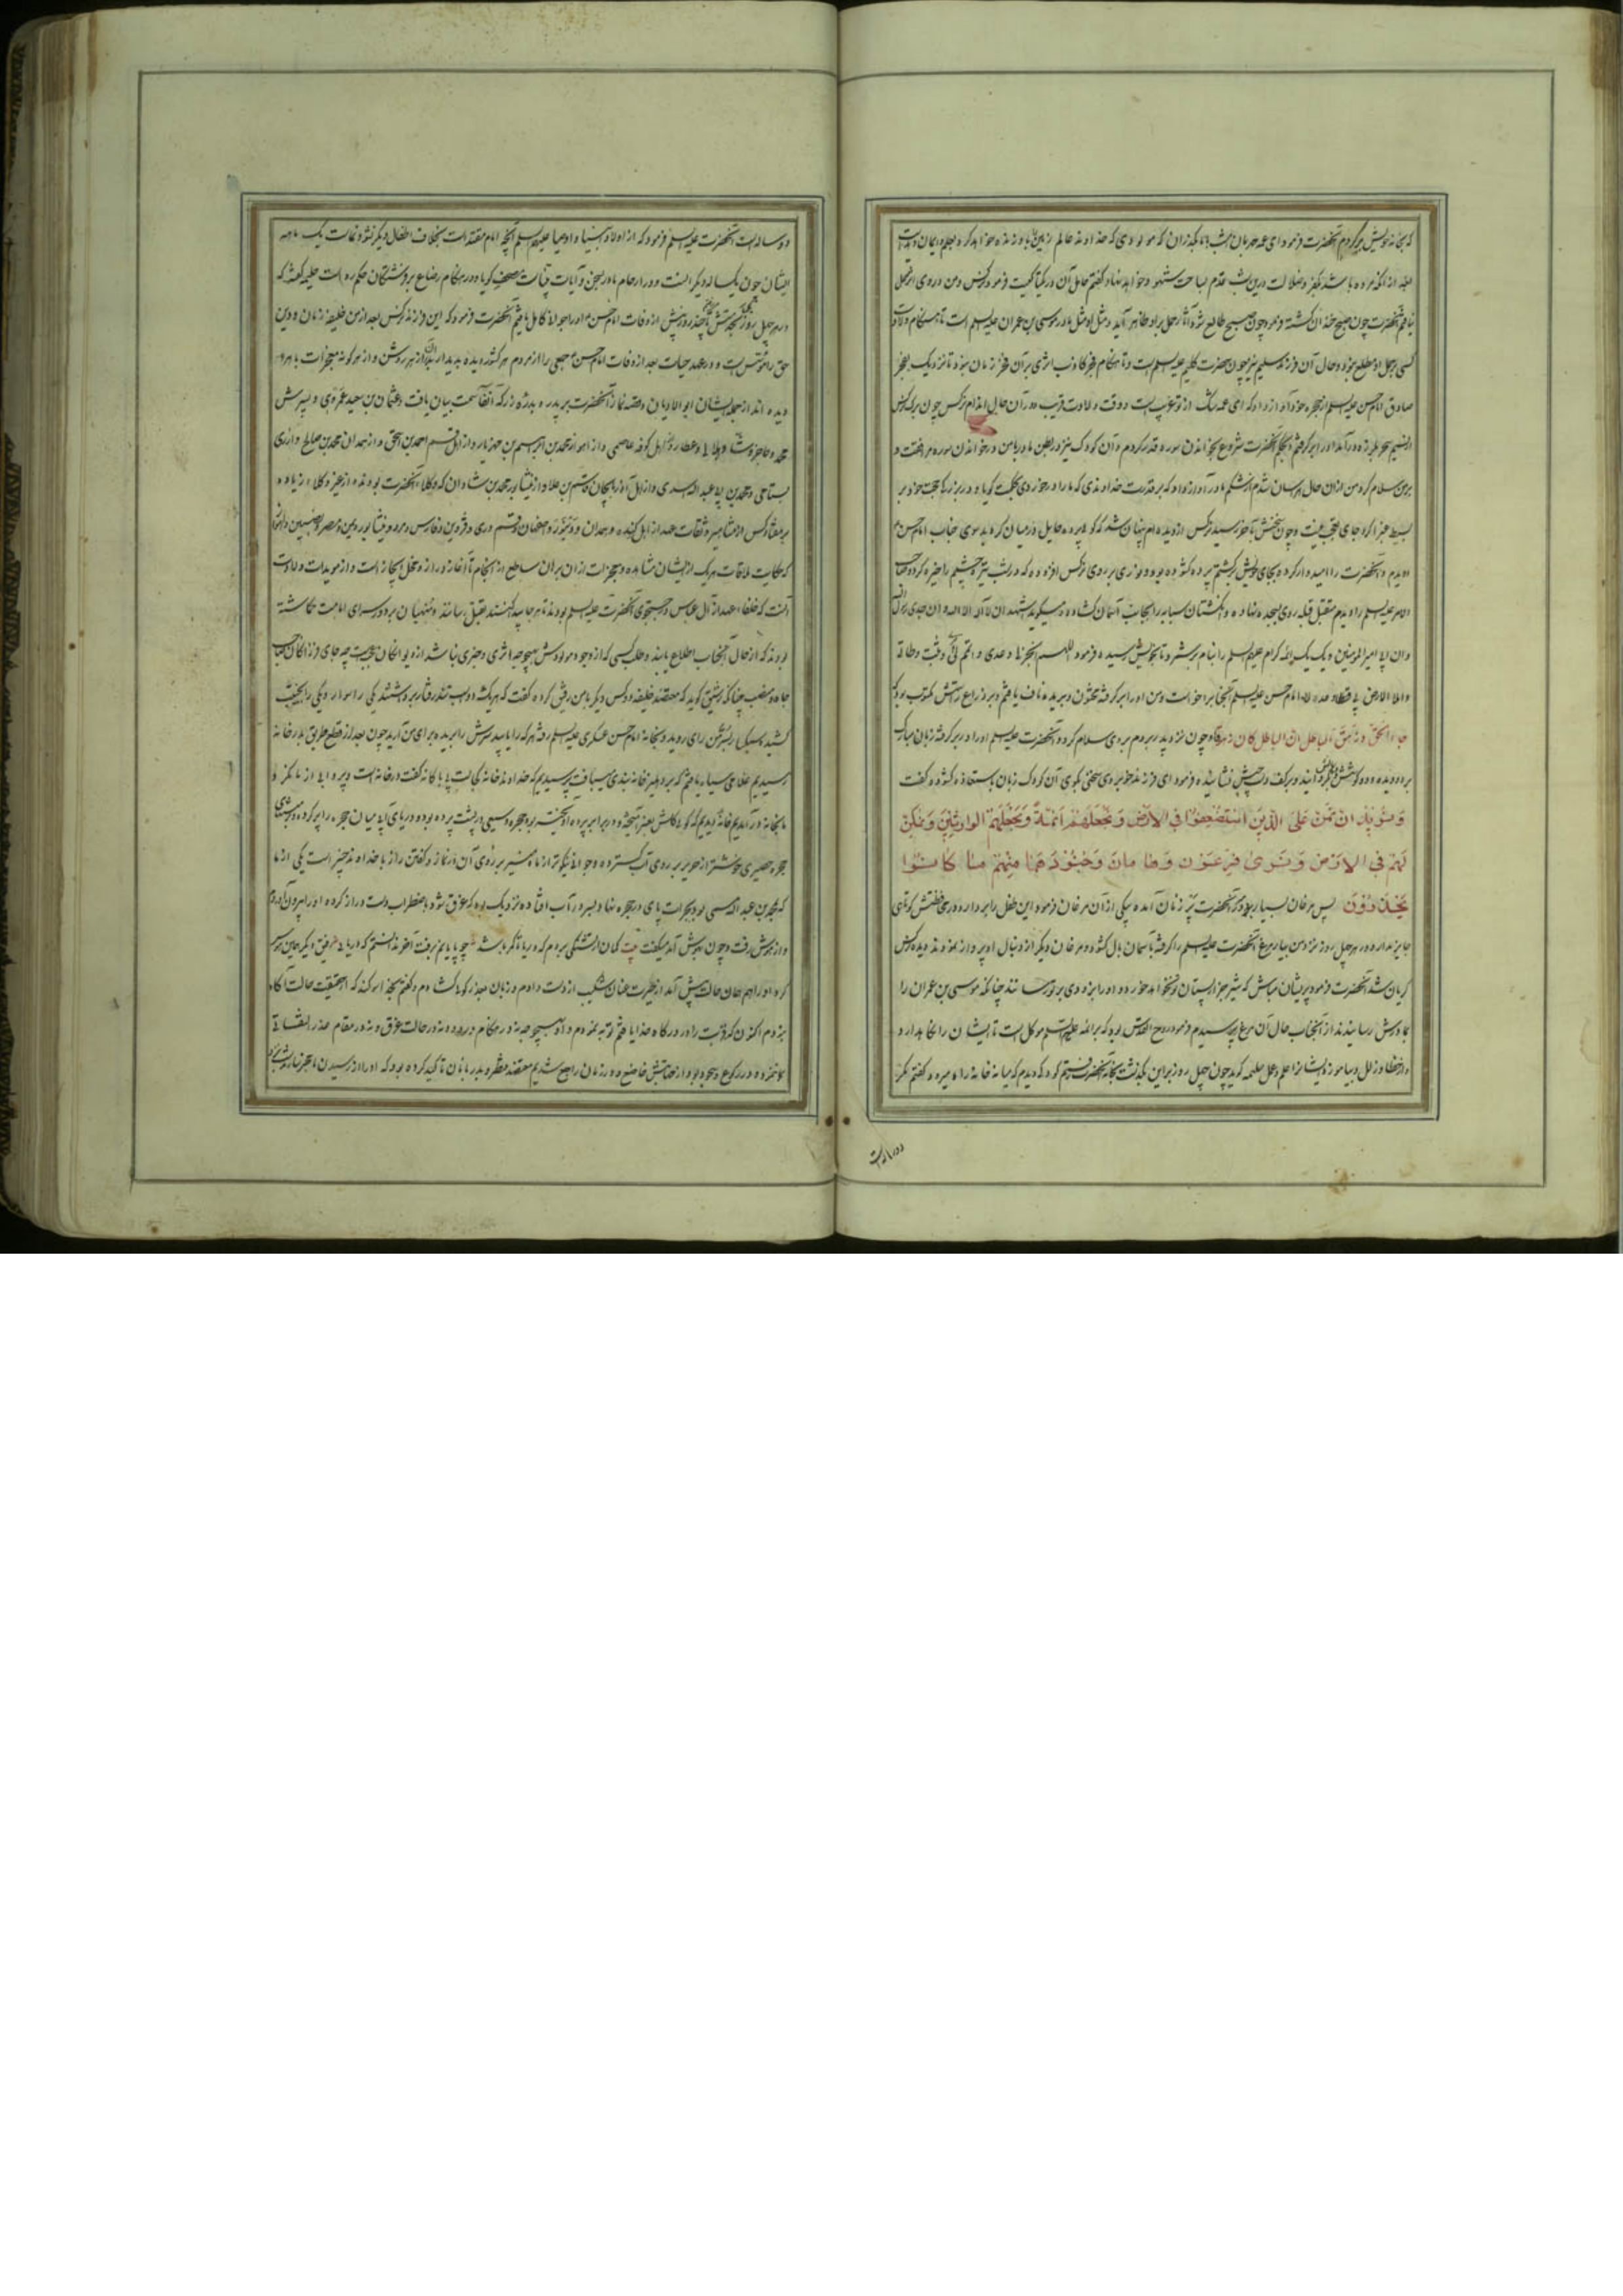 که بخانه خویش برگردم آنحضرت فرمود ای عمه مهربان امشب با ما بگذران که مولودی که خداوند عالم زمین را باو زنده خواهد کرد بعلم و ایمان و هدایت
بعد از آنکه مرده باشد بکفر و ضلالت درین شب قدم بساحت شهود خواهد نهاد گفتم حامل آن در یکتا کیست فرمود نرکس و من در وی اثر حمل
نیافتم آنحضرت چون صبح خندان گشته فرمود چون صبح طالع شود آثار حمل براو ظاهر آید و مثل او مثل مادر موسی بن عمران علیه السلم است تا هنگام ولادت
کسی بر حمل او مطلع نبود و حال آن فرزند سلیم نیز چون حضرت کلیم علیه السلم است و تا هنگام فجر کاذب اثری بر آن فخر زمان نبود تا نزدیک بفجر
صادق امام حسن علیه السلم از حجره خود آواز داد که ای عمه شک از تو عجب است و وقت ولادت قریب در آن حال اندام نرکس چون برک نرکس
از نسیم سحر بلرزه در آمد اورا دربر گرفتم و بحکم آنحضرت شروع بخواندن سوره قدر کردم و آن کودک نیز در بطن مادر با من در خواندن سوره مرافقت و
بر من سلام کرد من از آن حال هراسان شدم از شکم مادر آواز داد که بر قدرت خداوندی که ما را در خوردی بحکمت گویا و در بزرگی حجت خود بر
بسیط غبرا کرد جای تعجب نیست و چون سخنش بآخر رسید نرکس از دیده ام پنهان شد که گویا پرده حایل در میان گردید سوی جناب امام حسن
دویدم و آنحضرت را امیدوار کرده بجای خویش برگشتم پرده گشوده بود و نوری بر روی نرکس افزوده که در شب تیره چشم را خیره کرد و صاحب
الامر علیه السلم را دیدم مقبل قبله روی بسجده نهاده و انگشتان سبابه را بجانب آسمان گشاده میگوید اشهد ان لا اله الا الله و ان جدی رسول الله
و ان ابی امیر المؤمنین و یک یک ائمه کرام علیهم السلم را بنام برشمرد تا بخویش رسیده فرمود اللهم انجز لی وعدی و اتمم لی امری و ثبت وطاتی
واملا الارض بی قسطا و عدلا امام حسن علیه السلم آنجا برا خواست و من اورا بر گرفته مختون و بریده ناف یافتم و بر ذراع راستش مکتوب بود که
جاء الحق و زهق الباطل ان الباطل کان زهوقا چون نزد پدر بردم بر وی سلام کرد و آنحضرت علیه السلم اورا در بر گرفته زبان مبارک
بر دو دیده و دو گوشش گردانید و بر کف دست چپش نشانیده فرمود ای فرزند خوبروی سخنی بگوی آن کودک زبان باستعاذه گشوده گفت
وَنُرِیدُ اَنْ نَمُنَّ عَلَی الَّذِینَ اسْتُضْعِفُوا فِی الاَرْضِ وَ نَجْعَلَهُمْ اَئِمَّةً وَنَجْعَلَهُمُ الوارِثِینَ وَنُمَکِّنَ
لَهُمْ فِی الاَرْضِ وَنُرِیَ فِرْعَوْنَ وَهَامَانَ وَجُنُودَهُمَا مِنْهُمْ مَا کَانُوا
یَحْذَرُونَ پس مرغان بسیار بر گرد آنحضرت پر زنان آمده بیکی از آن مرغان فرمود این طفل را بردار و در حفظش کوتاهی
جایز مدار و در هر چهل روز نزد من بیار مرغ آنحضرت علیه السلم را گرفته بآسمان بال گشود و مرغان دیگر از دنبال او پرواز نمودند و دیده نرکس
گریان شد آنحضرت فرمود پریشان مباش که شیر جز از پستان تو نخواهد خورد و اورا بزودی بر تو رسانند چنانکه موسی بن عمران را
بمادرش رسانیدند از آنجناب حال آن مرغ پرسیدم فرمود روح القدس بود که بر ائمه علیهم السلم موکل است تا ایشان را نگاهدارد
از خطا و زلل و بیاموزد ایشانرا علم و عمل حلیمه گوید چون چهل روز براین بگذشت بخانه آنحضرت رفتم کودکی دیدم که میانه خانه راه میرود گفتم مگر
دو ساله است
دو ساله است آنحضرت علیه السلم فرمود که از اولاد انبیا و اوصیا علیهم السلم آنچه امام مقتداست بخلاف اطفال دیگر نشو و نماست یک ماهه
ایشان چون یکساله دیگرانست و در ارحام مادر بسخن و آیات بینات صحف گویا و در هنگام رضاع بر فرشتگان حکم رواست حلیمه گفته که
در هر چهل روز بخدمتش تا چند روز پیش از وفات امام حسن اورا جوانی کامل یافتم آنحضرت فرمود که این فرزند نرکس بعد از من خلیفه زمان و دین
حق را مؤسس است و در عهد حیات بعد از وفات امام حسن جمعی را از مردم هر کشور دیده بدیدار از هر روشن و از هر گونه معجزات باهره
دیده اند از جمله ایشان ابو الادیان و قصه نماز آنحضرت بر پدر سمت بیان یافت و عثمان بن سعید عمروی و پسرش
محمد و حاجز وشا و بلالی و عطار و از اهل کوفه عاصمی و از اهواز محمد بن ابراهیم بن مهزیار و از اهل قم احمد بن اسحق و از همدان محمد بن صالح و از ری
بسامی و محمد بن ابی عبد الله اسدی و از اهل آذربایجان قاسم بن علا و از نیشابور محمد بن شادان که وکلاء آنحضرت بودند و از غیر وکلا زیاده
بر هفتاد کس از مشاهیر و ثقات عهد از اهل بغداد و همدان و دینور و صفهان و قم و ری و قزوین و فارس و مرو و نیشابور و یمن و مصر و نصیبین و اهواز
که حکایت ملاقات هریک از ایشان مشاهده و معجزات از آن بران ساطع از انجام تا آغاز دور از و مخل ایجاز است و از مویدات ولادت
آنست که خلفاء عهد از آل عباس در جستجوی آنحضرت علیه السلم بودند تا هر جا بیند بقتل رسانند و منهیان بر در سرای امامت گماشته
بودند که از حال آنجناب اطلاع یابند و طلب کسی که از وجود مولودش هیچوجه اثری و خبری نباشد
جاه و منصب چنانکه رشیق گوید که معتضد خلیفه دو کس دیگر با من رفیق کرده گفت که هریک دو اسب تند رفتار بر وی سوار و یکی را بجنیبت
کشید و سبک بسر من رای روید و بخانه امام حسن عسکری علیه السلم رفته هر که را یابید سرش را بریده برای من آرید چون بعد از قطع طریق بدر خانه
رسیدیم غلامی سیاه یافتیم که بر دهلیز خانه بندی میبافت پرسیدیم که خداوند خانه کیست بی باکانه گفت در خانه است و پروایی از ما نکرد
ما بخانه در آمدیم خانه دیدیم و در برابر پرده آویخته بود و حجره وسیعی در پشت پرده بود و دریای آبی میان حجره را پر کرده و در منتهای
حجره حصیری خوشتر از حریر بر روی آب گسترده و جوانی نیکوتر از ماه منیر بر روی آن در نماز و گفتن راز با خداوند خبیر است یکی از ما
که احمد بن عبد الله میسی بود بجرات پای در حجره نهاد و بسر در آب افتاد و نزدیک بود که غرق شود باضطراب دست دراز کرده اورا بیرون آوردم
و از هوش رفت و چون بهوش آمد میگفت بیت گمان ز تشنگی بردم که دریا تا کمر باشد چو پایابم برفت آخر دانستم که دریایی رفیق دیگر همین هوس
کرد اورا هم همان حالت پیش آمد از حیرت عنان شکیب از دست دادم و زبان بعذر گویا گشادم و گفتم بخدا سوگند که از حقیقت حالت آگاه
نبودم اکنون که قربت را در درگاه خدا یافتم توبه نمودم و او بهیچوجه نه در هنگام ورود و نه در حالت غرق و نه در مقام عذر التفاتی
نفرمود و در رکوع و سجود بود از خدمتش خاضع در زمان راجع شدیم معتضد منتظر و بدربانان تاکید کرده بود که اورا از رسیدن ما خبر نمایند